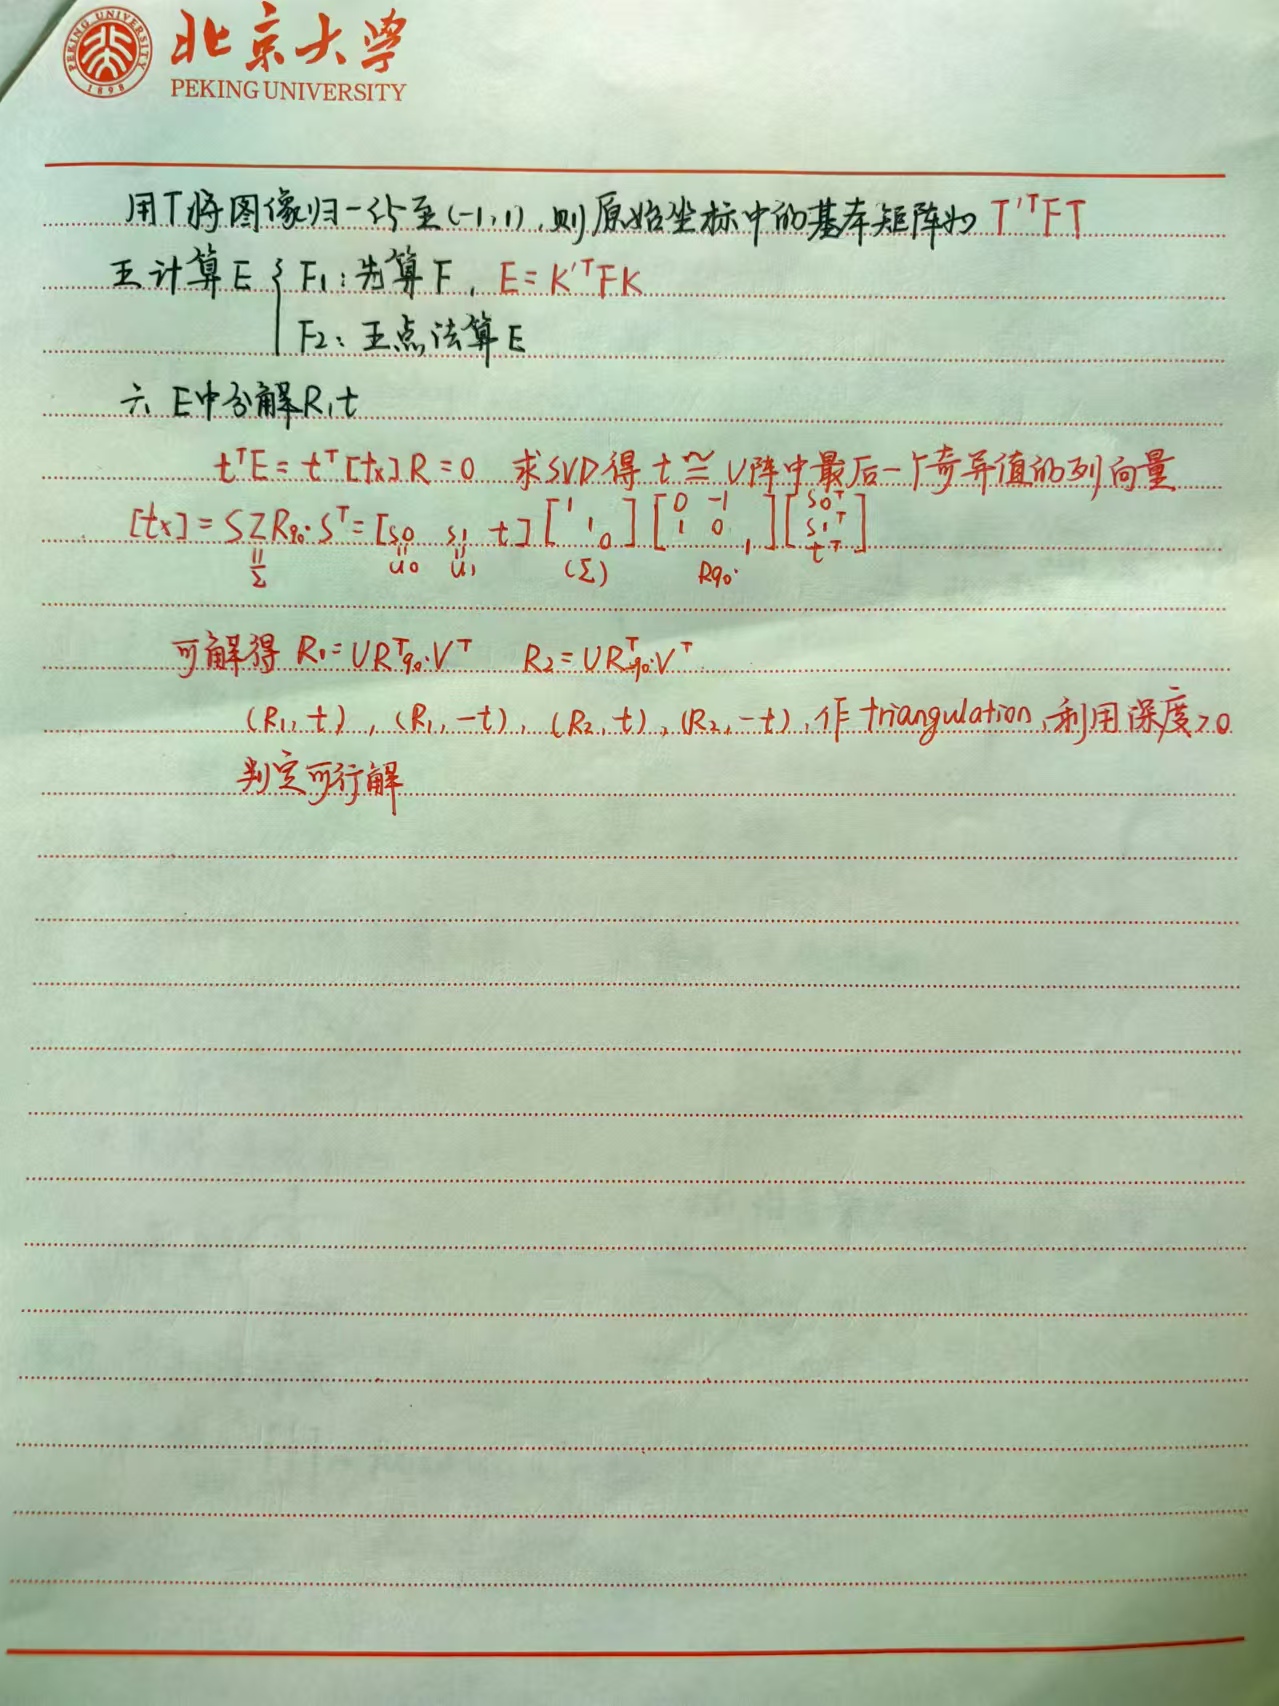 北京大学
PEKING UNIVERSITY
PEKING UNIVERSITY
1898
用T将图像归一化至(-1,1),则原始坐标中的基本矩阵为 T'ᵀFT
五 计算E { F1:先算F, E=K'ᵀFK
F2:五点法算E
六 E中分解R,t
tᵀE = tᵀ[tx]R = 0 求SVD得 t ≅ U阵中最后一个奇异值的列向量
[tx] = SZR90°Sᵀ = [s0 s1 t] [1 1 0] [0 -1 1 0 1] [s0ᵀ s1ᵀ tᵀ]
= Σ = u0 = u1 (Σ) R90°
可解得 R1=URᵀ90°Vᵀ R2=URᵀ-90°Vᵀ
(R1,t),(R1,-t),(R2,t),(R2,-t),作triangulation,利用深度>0
判定可行解